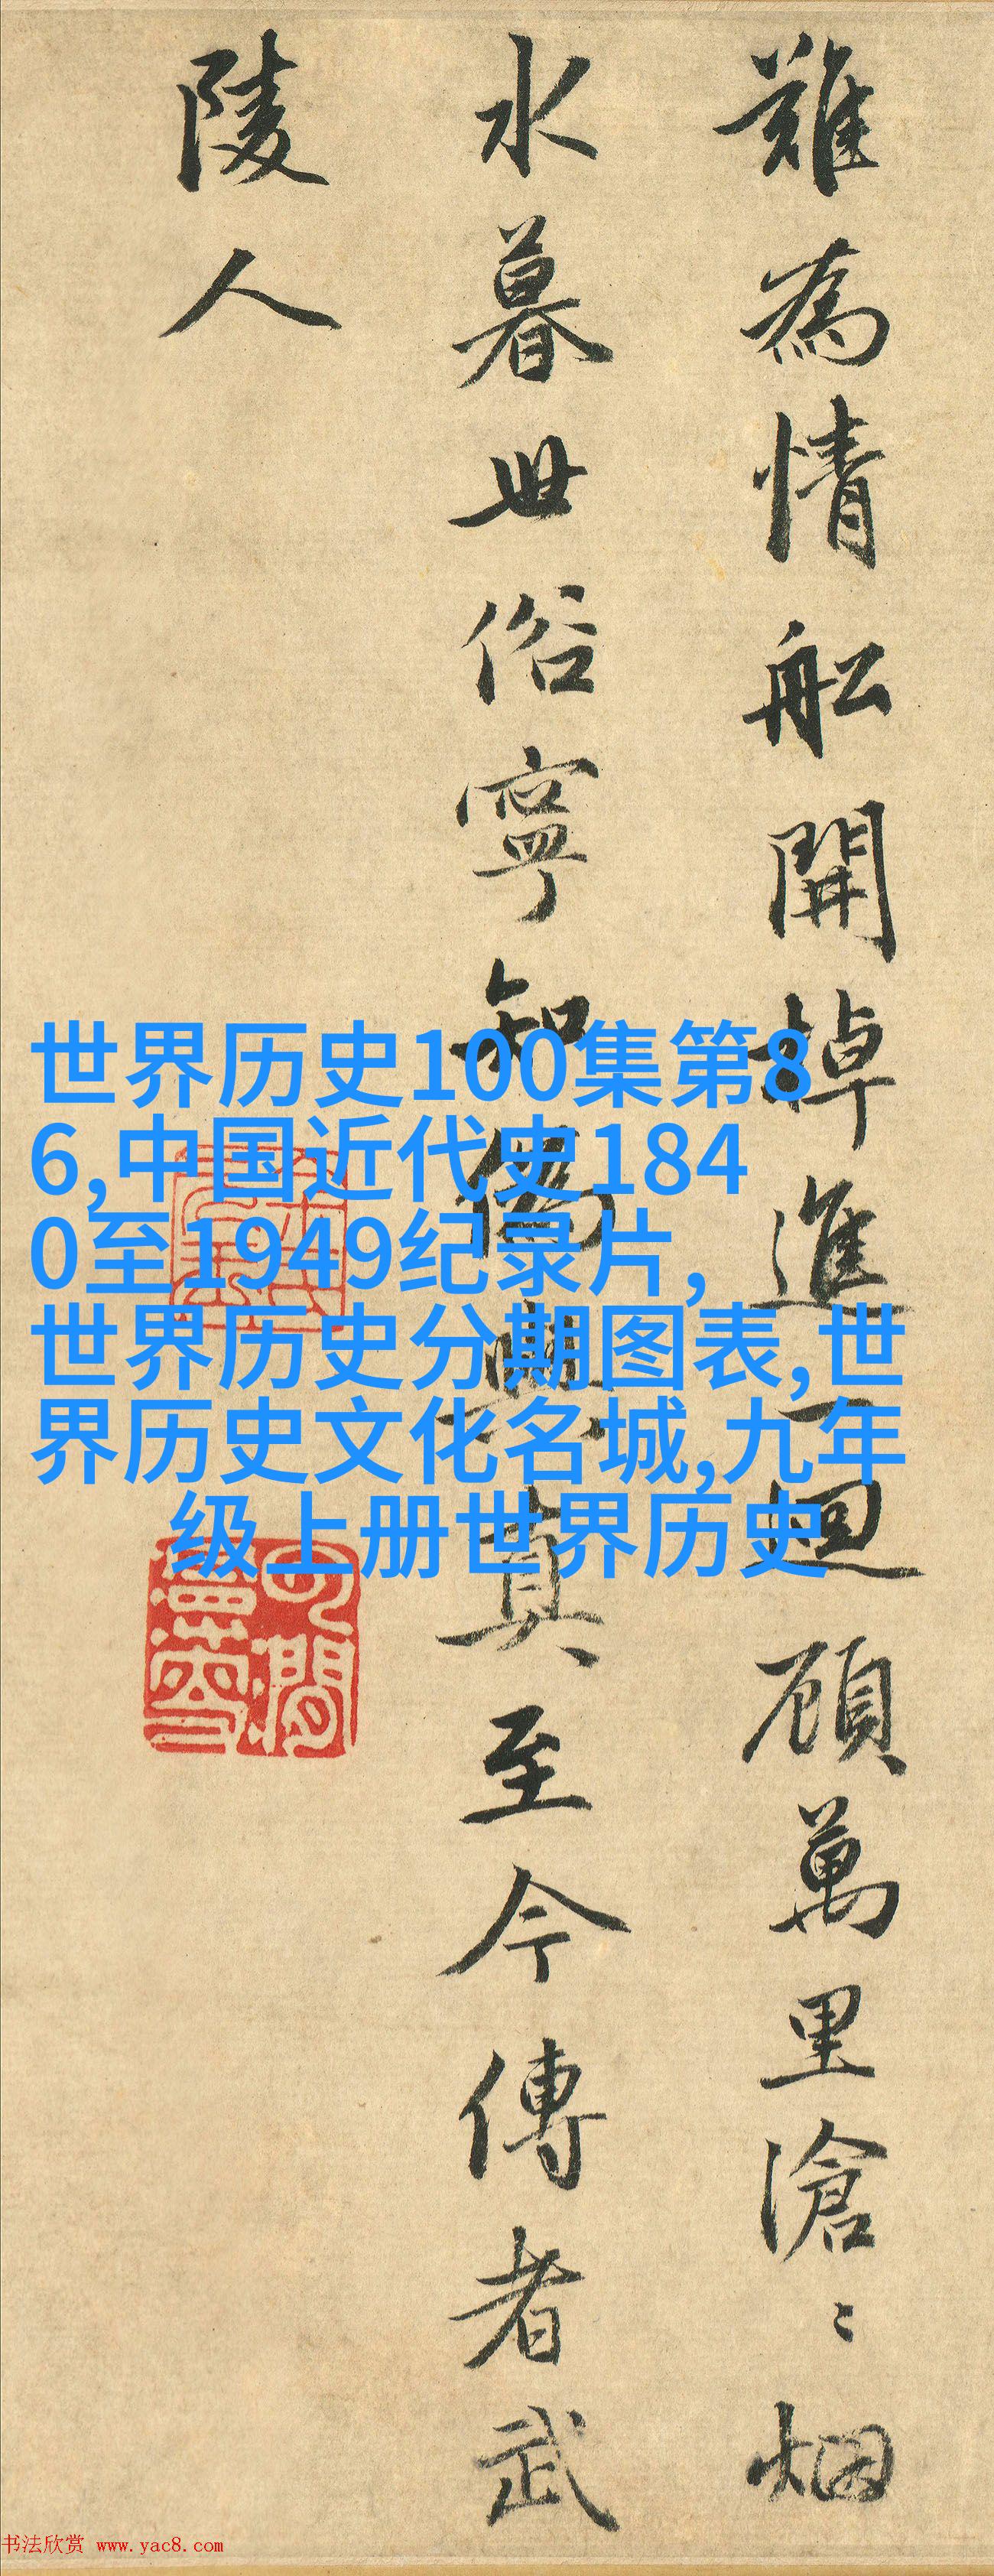 難為情船開棹進一迴顧萬里滄〻烟
水暮世俗寧知偽與真至今傳者武
陵人
世界历史100集第8
6,中国近代史184
0至1949纪录片,
世界历史分期图表,世
界历史文化名城,九年
级上册世界历史
书法欣赏 www.yac8.com